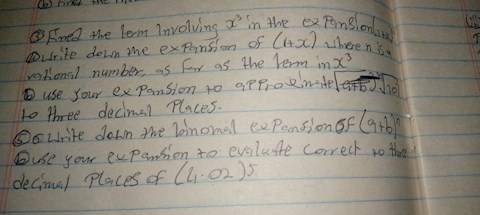 (b) Find the
③ Find the term Involving x³ in the expansion
④ Write down the expansion of (1+x) where n is a
rational number, as far as the term in x³
ⓑ use your expansion to approximate
to three decimal Places.
⑤ a Write down the binomial expansion of (a+b)
ⓑ use your expansion to evaluate correct to three
decimal Places of (4.02)5